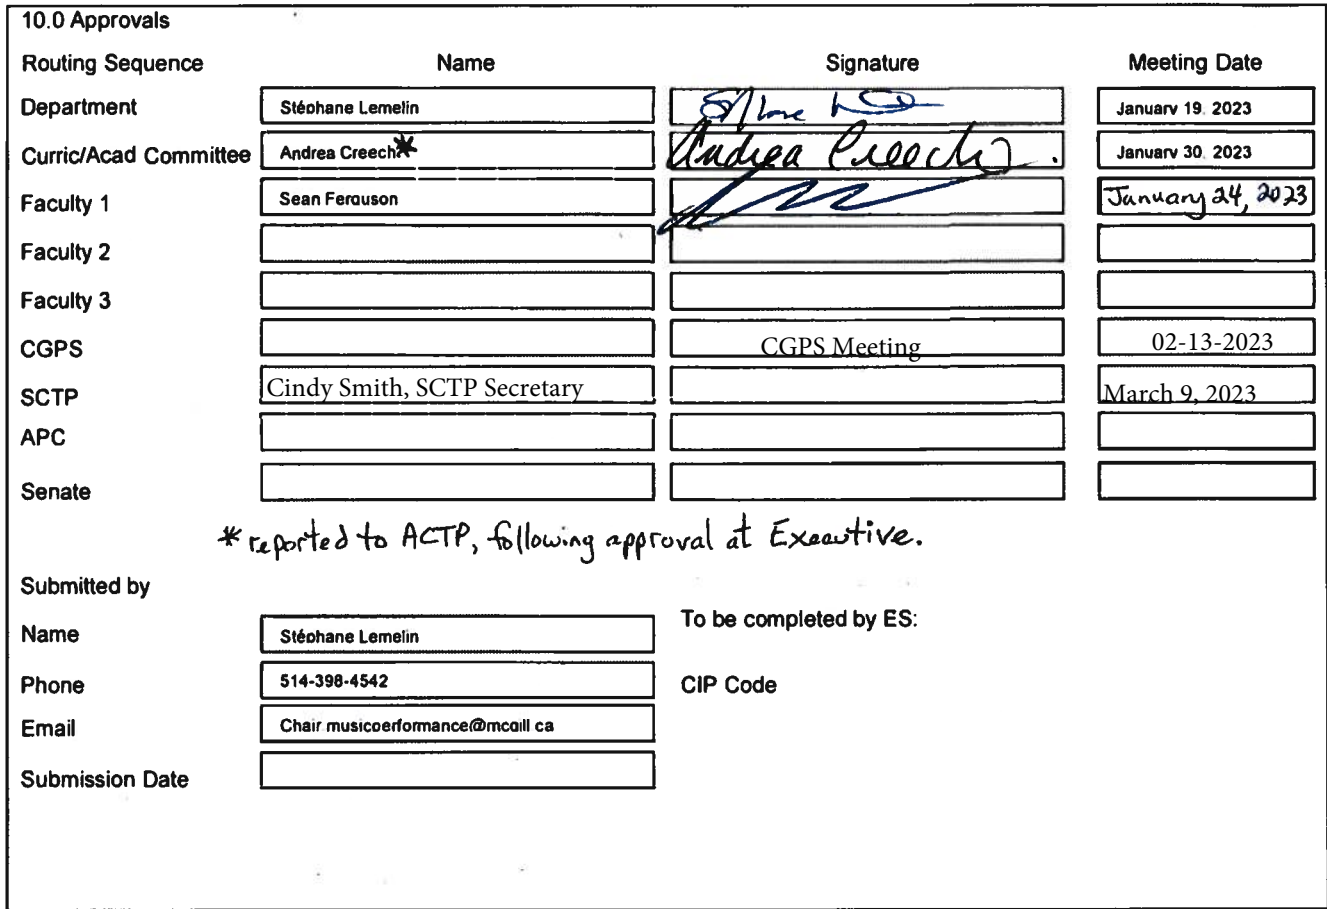 10.0 Approvals
Routing Sequence Name Signature Meeting Date
Department Stéphane Lemelin January 19, 2023
Curric/Acad Committee Andrea Creech* Andrea Creech January 30, 2023
Faculty 1 Sean Ferguson January 24, 2023
Faculty 2
Faculty 3
CGPS CGPS Meeting 02-13-2023
SCTP Cindy Smith, SCTP Secretary March 9, 2023
APC
Senate
* reported to ACTP, following approval at Executive.
Submitted by
To be completed by ES:
Name Stéphane Lemelin
Phone 514-398-4542 CIP Code
Email Chair musicperformance@mcgill ca
Submission Date